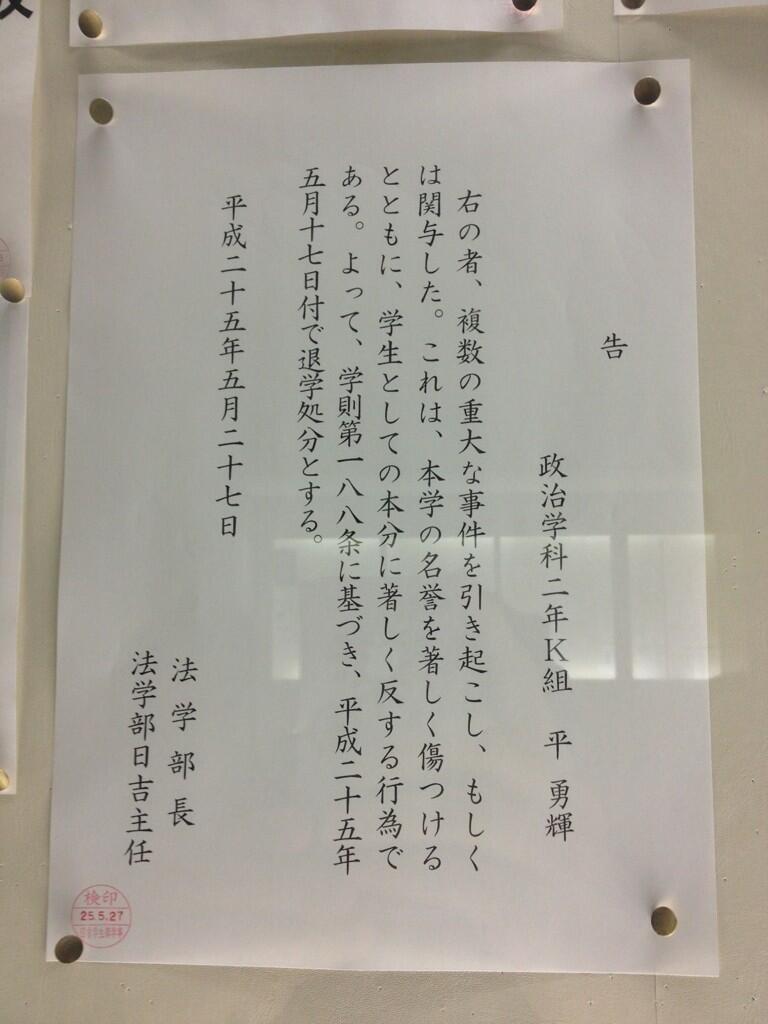 告
政治学科二年K組　平　勇輝
右の者、複数の重大な事件を引き起こし、もしく
は関与した。これは、本学の名誉を著しく傷つける
とともに、学生としての本分に著しく反する行為で
ある。よって、学則第一八八条に基づき、平成二十五年
五月十七日付で退学処分とする。
平成二十五年五月二十七日
法学部長
法学部日吉主任
検印
25.5.27